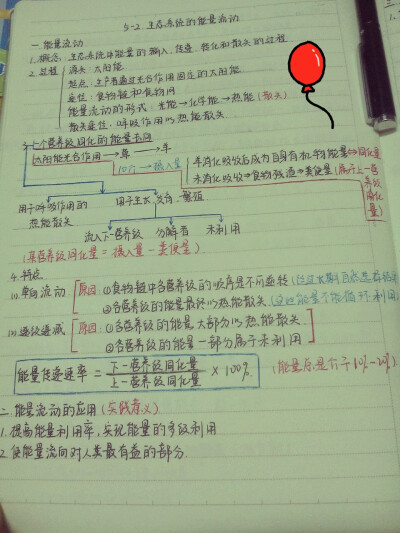 5-2 生态系统的能量流动
一 能量流动
1. 概念: 生态系统中能量的输入、传递、转化和散失的过程
2. 过程
源头: 太阳能
起点: 生产者通过光合作用固定的太阳能
渠道: 食物链和食物网
能量流动的形式: 光能→化学能→热能(散失)
散失途径: 呼吸作用以热能散失
个营养级同化的能量去向
太阳能光合作用→草→羊
摄入量
未消化吸收→食物残渣→粪便量(属于上一营养级同化量)
用于呼吸作用的热能散失
用于生长、发育、繁殖
流入下一营养级 分解者 未利用
(某营养级同化量=摄入量-粪便量)
4. 特点
(1) 单向流动
原因: ①食物链中各营养级的顺序是不可逆转
②各营养级的能量最终以热能散失
(2) 逐级递减
原因: ①各营养级的能量大部分以热能散失
②各营养级的能量一部分属于未利用
能量传递速率 = 下一营养级同化量 / 上一营养级同化量 × 100%
10%-20%)
二 能量流动的应用(实践意义)
1. 提高能量利用率, 实现能量的多级利用
2. 使能量流向对人类最有益的部分.